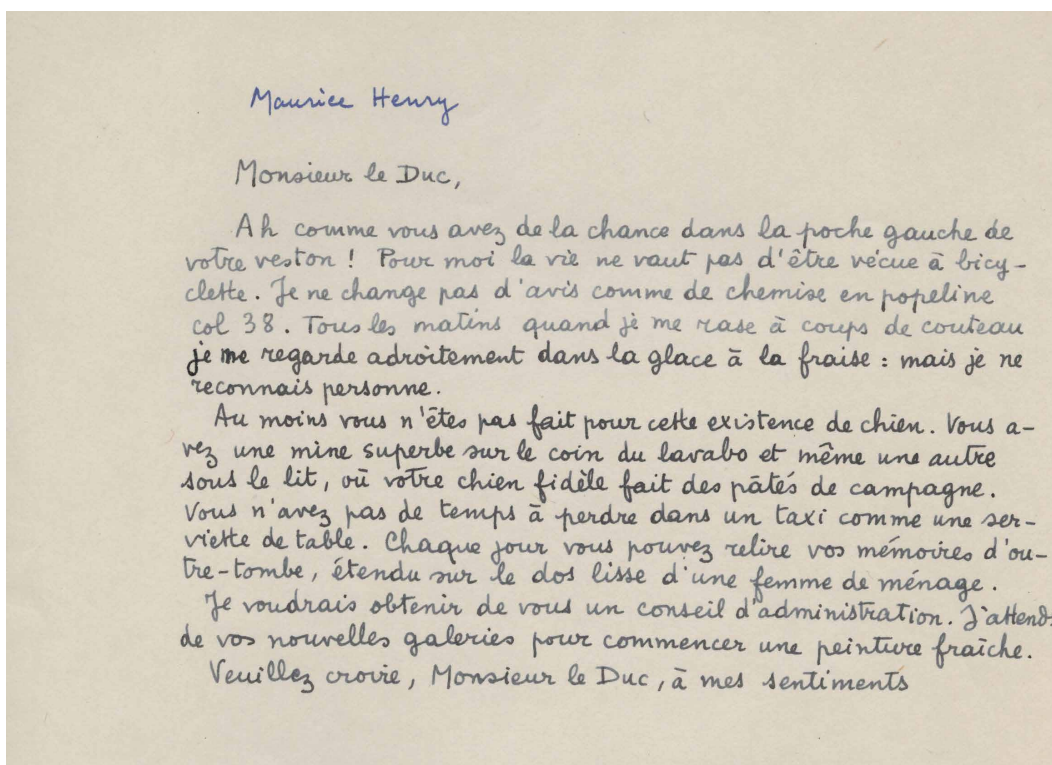 Maurice Henry
Monsieur le Duc,
Ah comme vous avez de la chance dans la poche gauche de
votre veston ! Pour moi la vie ne vaut pas d'être vécue à bicy-
clette. Je ne change pas d'avis comme de chemise en popeline
col 38. Tous les matins quand je me rase à coups de couteau
je me regarde adroitement dans la glace à la fraise : mais je ne
reconnais personne.
Au moins vous n'êtes pas fait pour cette existence de chien. Vous a-
vez une mine superbe sur le coin du lavabo et même une autre
sous le lit, où votre chien fidèle fait des pâtés de campagne.
Vous n'avez pas de temps à perdre dans un taxi comme une ser-
viette de table. Chaque jour vous pouvez relire vos mémoires d'ou-
tre-tombe, étendu sur le dos lisse d'une femme de ménage.
Je voudrais obtenir de vous un conseil d'administration. J'attends
de vos nouvelles galeries pour commencer une peinture fraîche.
Veuillez croire, Monsieur le Duc, à mes sentiments